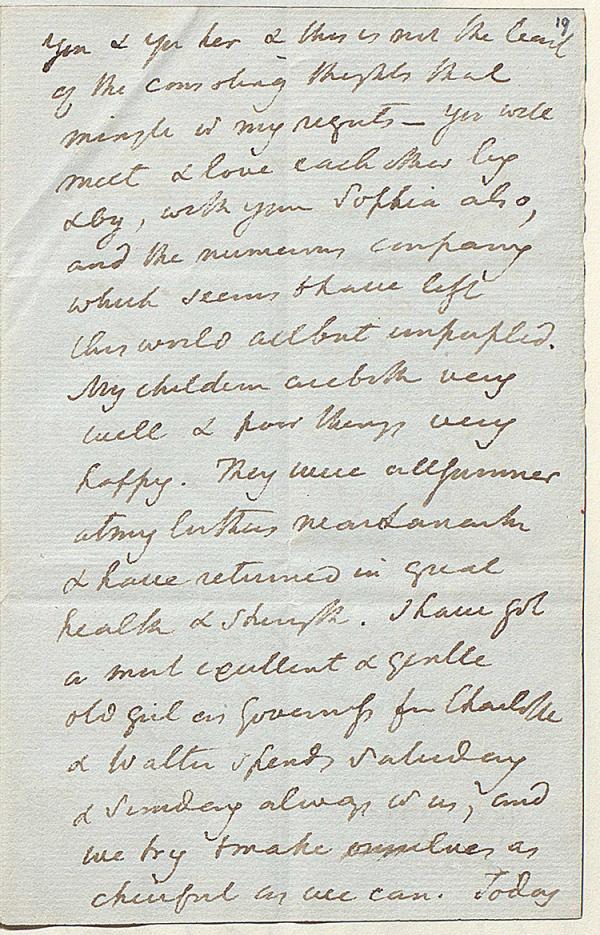 19
you & you her & this is not the least
of the consoling thights that
mingle w my regrets — you will
meet & love each other by
& by, with your Sophia also,
and the numerous company
which seems t have left
this world all but unpeopled.
My children are both very
well & poor things very
happy. They were all summer
at my brothers near Lanark
& have returned in great
health & strength. I have got
a most excellent & gentle
old girl as Governess for Charlotte
& Walter spends Saturday
& Sunday always w us, and
we try t make ourselves as
cheerful as we can. Today